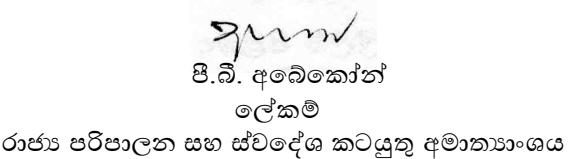 පී.බී. අබේකෝන්
ලේකම්
රාජ්‍ය පරිපාලන සහ ස්වදේශ කටයුතු අමාත්‍යාංශය